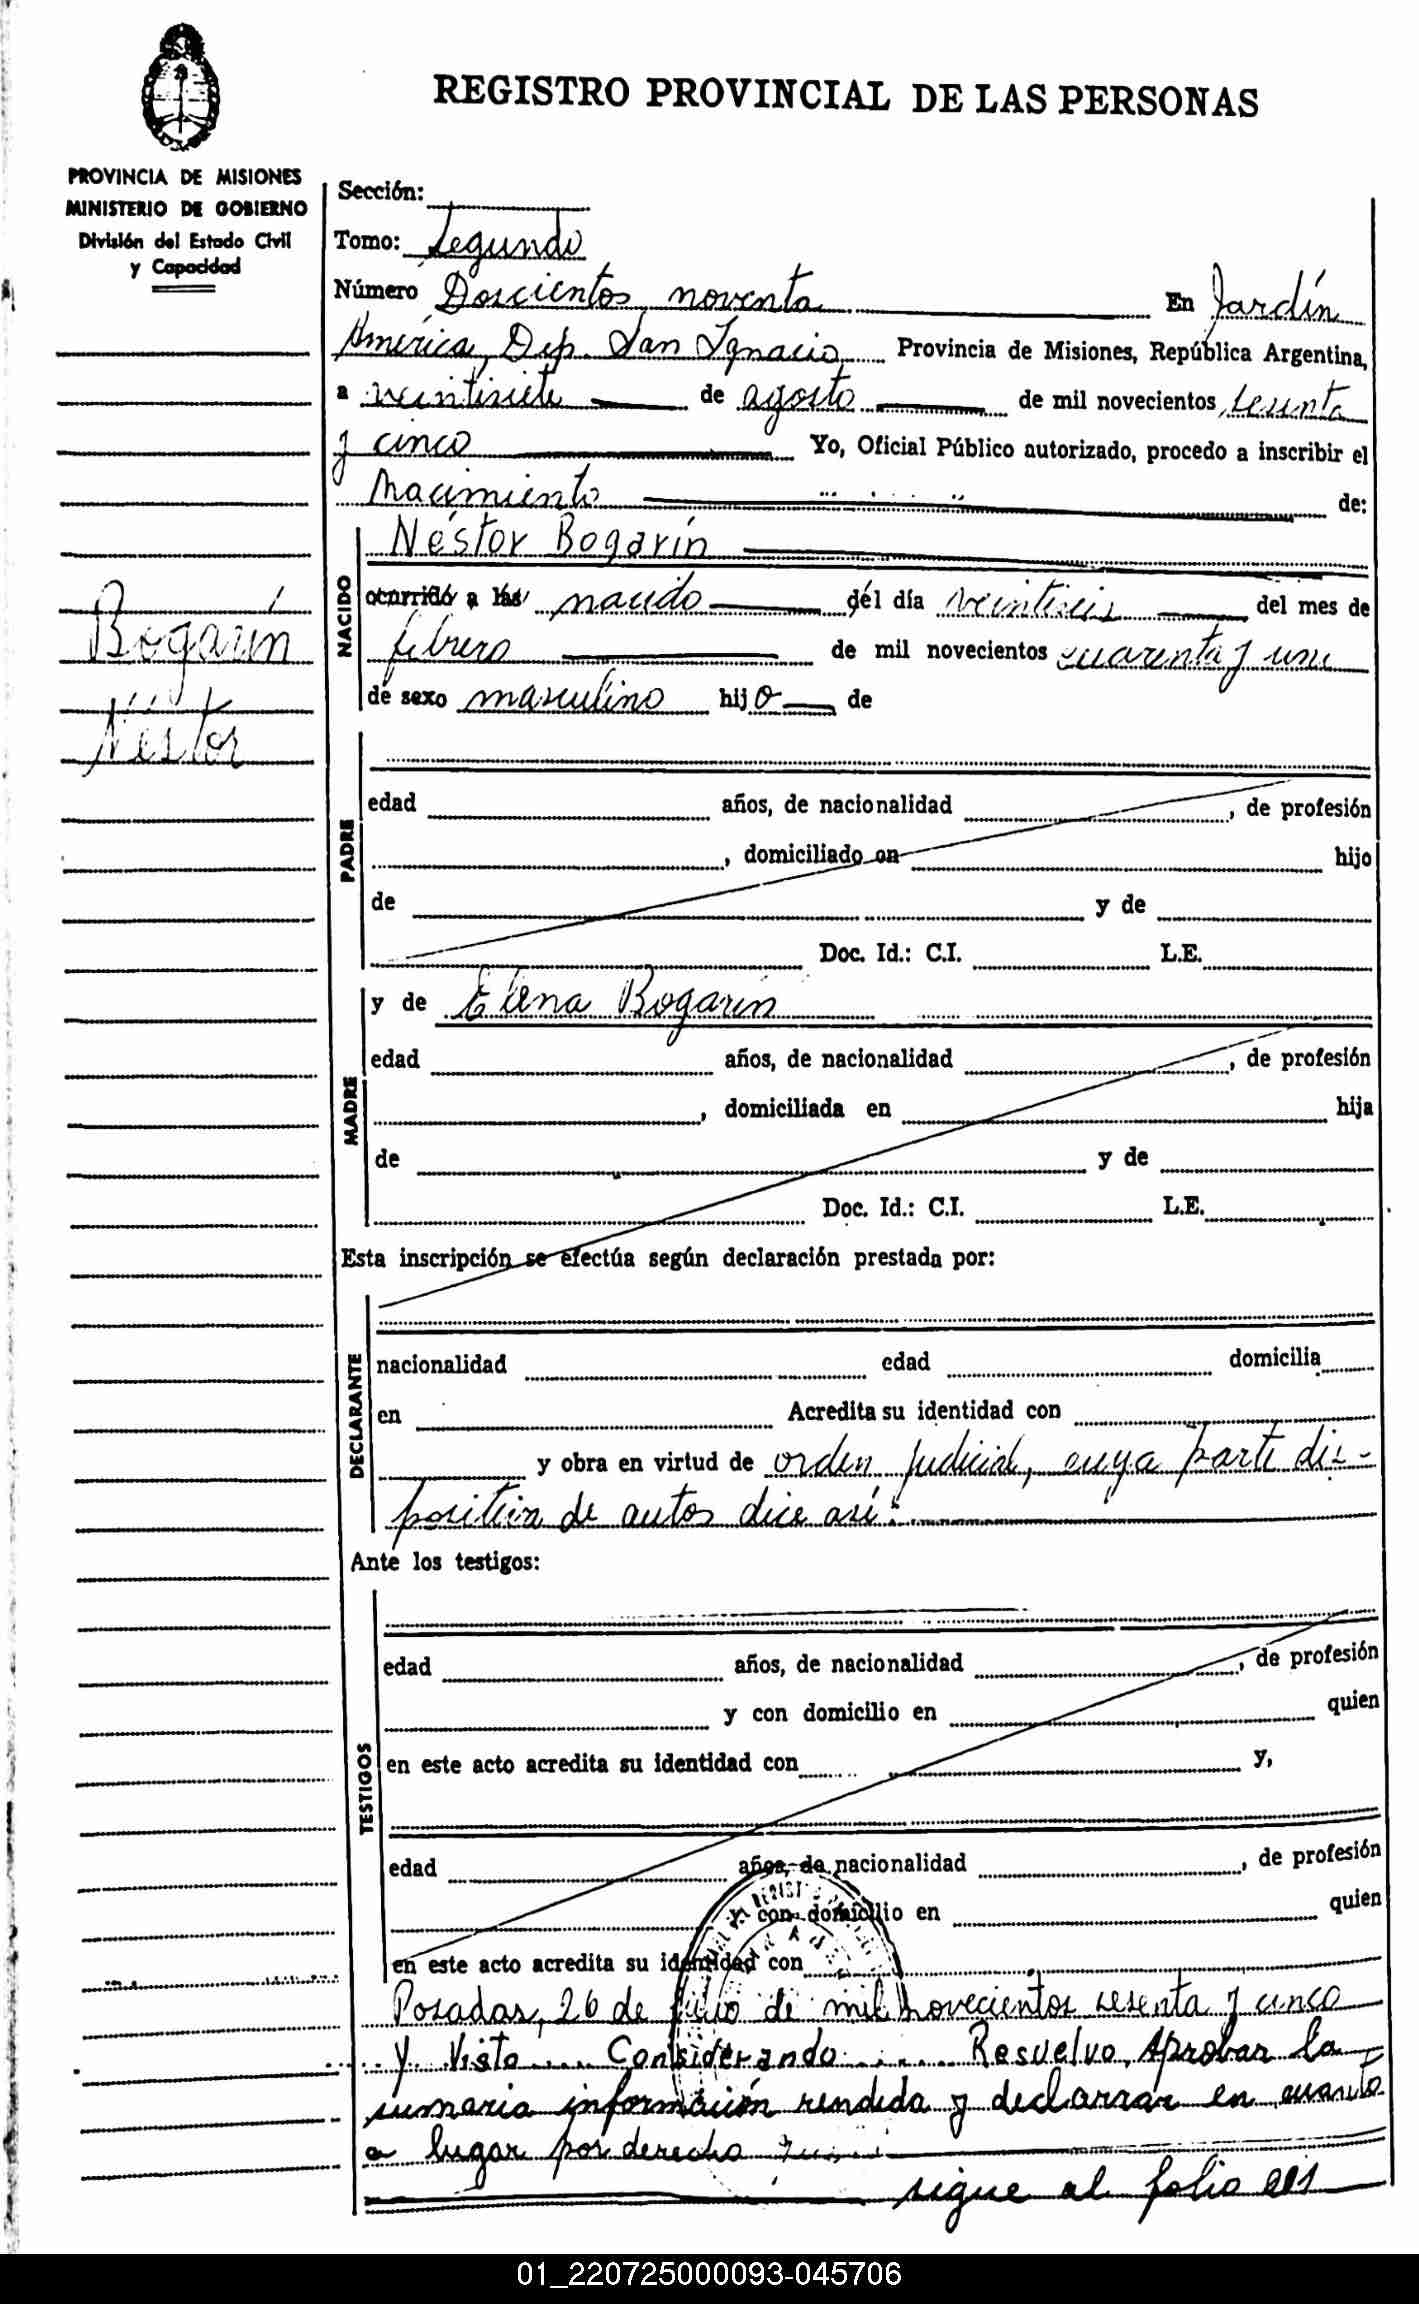 REGISTRO PROVINCIAL DE LAS PERSONAS
PROVINCIA DE MISIONES
MINISTERIO DE GOBIERNO
División del Estado Civil
y Capacidad
Sección:
Tomo: Segundo
Número Doscientos noventa En Jardín
América, Dep. San Ignacio Provincia de Misiones, República Argentina,
a veintisiete de agosto de mil novecientos sesenta
y cinco Yo, Oficial Público autorizado, procedo a inscribir el
Nacimiento de:
Bogarín
Néstor
NACIDO
Néstor Bogarín
ocurrido a las nacido del día veintiseis del mes de
febrero de mil novecientos cuarenta y uno
de sexo masculino hijo de
PADRE
edad años, de nacionalidad , de profesión
, domiciliado en hijo
de y de
Doc. Id.: C.I. L.E.
MADRE
y de Elena Bogarín
edad años, de nacionalidad , de profesión
, domiciliada en hija
de y de
Doc. Id.: C.I. L.E.
Esta inscripción se efectúa según declaración prestada por:
DECLARANTE
nacionalidad edad domicilia
en Acredita su identidad con
y obra en virtud de orden judicial, cuya parte dis-
positiva de autos dice así:
Ante los testigos:
TESTIGOS
edad años, de nacionalidad , de profesión
y con domicilio en quien
en este acto acredita su identidad con y,
edad años, de nacionalidad , de profesión
con domicilio en quien
en este acto acredita su identidad con
Posadas, 26 de julio de mil novecientos sesenta y cinco
Y Visto .... Considerando ..... Resuelvo, Aprobar la
sumaria información rendida y declarar en cuanto
a lugar por derecho
sigue al folio 291
01_220725000093-045706